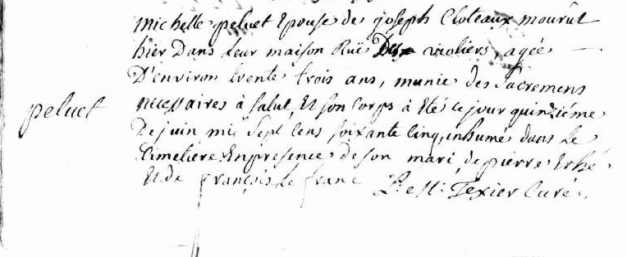 Michelle peluet Epouse de joseph Cloteaux mourut
hier Dans leur maison Rüe Des violiers, agée
D'environ trente trois ans, munie des Sacremens
necessaires à Salut, Et son Corps à Eté ce jour quinziéme
peluet
De juin mil Sept Cens soixante Cinq, inhumé dans Le
Cimetiere En presence de son mari, de pierre
Et de françois Le franc P. Texier Curé.